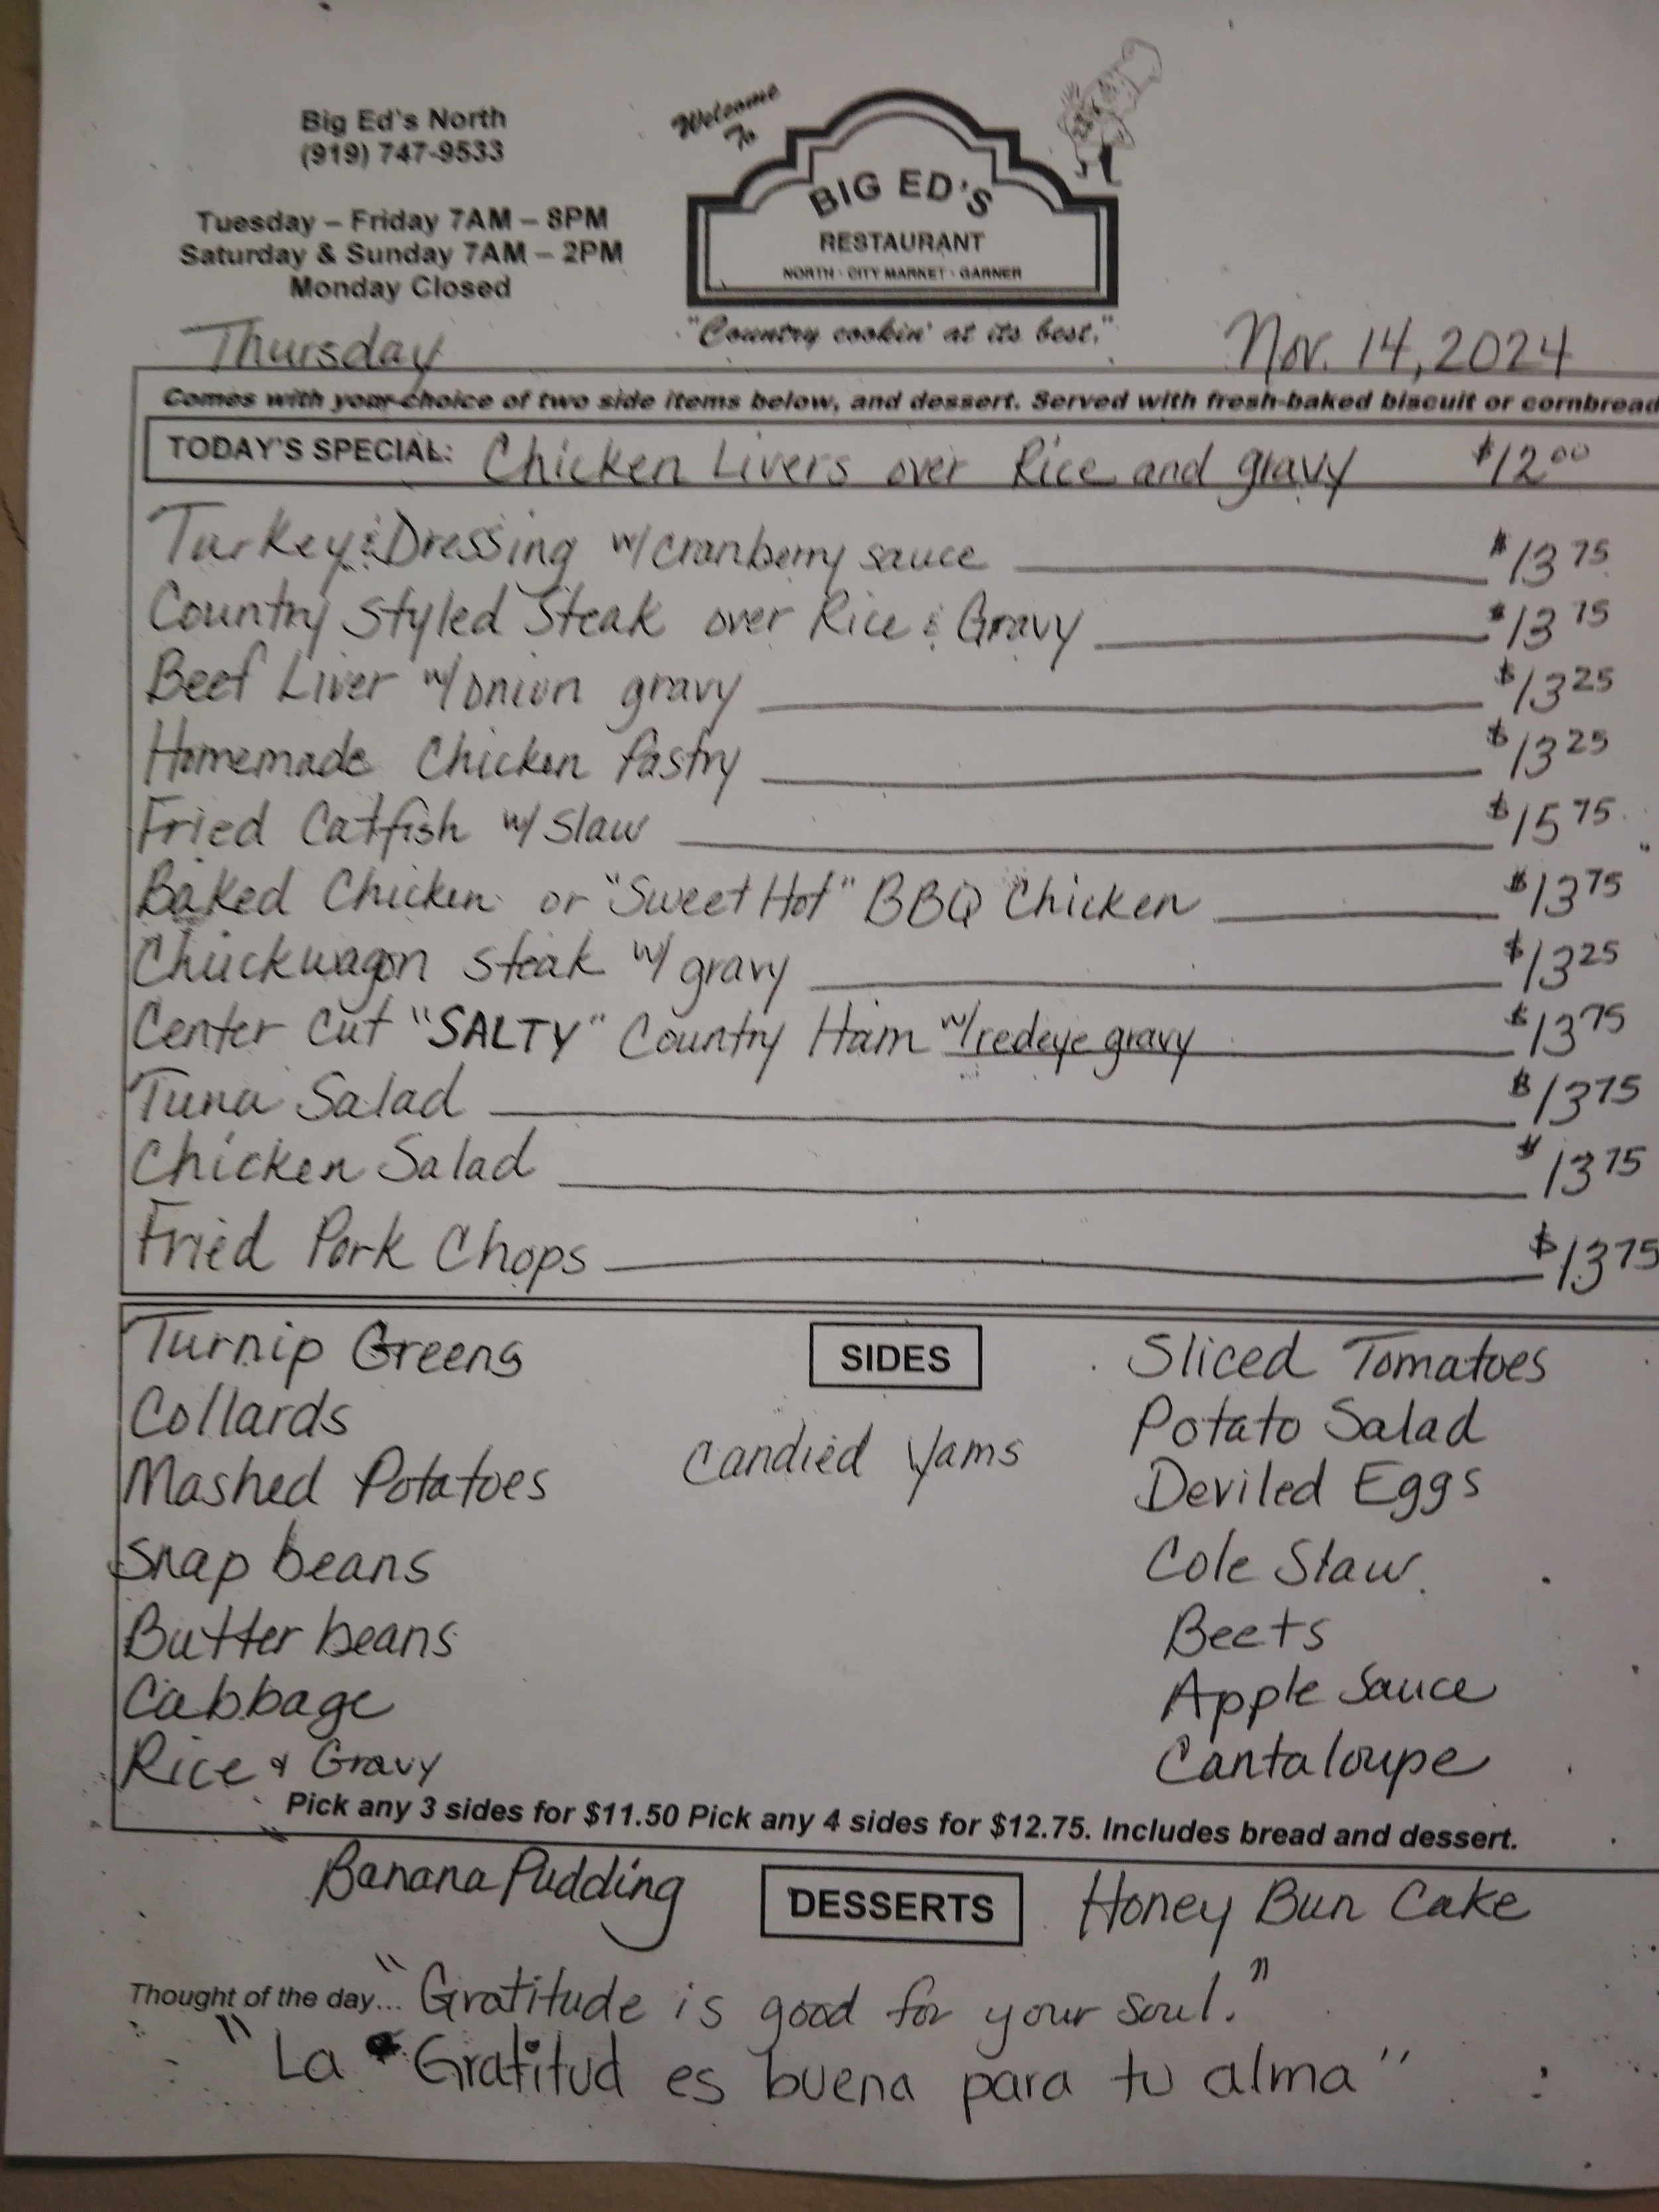 Big Ed's North
(919) 747-9533
Tuesday – Friday 7AM – 8PM
Saturday & Sunday 7AM – 2PM
Monday Closed
Welcome
To
BIG ED'S
RESTAURANT
NORTH · CITY MARKET · GARNER
"Country cookin' at its best."
Thursday
Nov. 14, 2024
Comes with your choice of two side items below, and dessert. Served with fresh-baked biscuit or cornbread
TODAY'S SPECIAL: Chicken Livers over Rice and gravy $12.00
Turkey & Dressing w/ cranberry sauce $13.75
Country Styled Steak over Rice & Gravy $13.75
Beef Liver w/ onion gravy $13.25
Homemade Chicken Pastry $13.25
Fried Catfish w/ Slaw $15.75
Baked Chicken or "Sweet Hot" BBQ Chicken $13.75
Chuckwagon Steak w/ gravy $13.25
Center Cut "SALTY" Country Ham w/ redeye gravy $13.75
Tuna Salad $13.75
Chicken Salad $13.75
Fried Pork Chops $13.75
SIDES
Turnip Greens
Collards
Mashed Potatoes
Snap beans
Butter beans
Cabbage
Rice & Gravy
Candied Yams
Sliced Tomatoes
Potato Salad
Deviled Eggs
Cole Slaw.
Beets
Apple Sauce
Cantaloupe
Pick any 3 sides for $11.50 Pick any 4 sides for $12.75. Includes bread and dessert.
Banana Pudding
DESSERTS
Honey Bun Cake
Thought of the day... "Gratitude is good for your soul."
"La Gratitud es buena para tu alma"